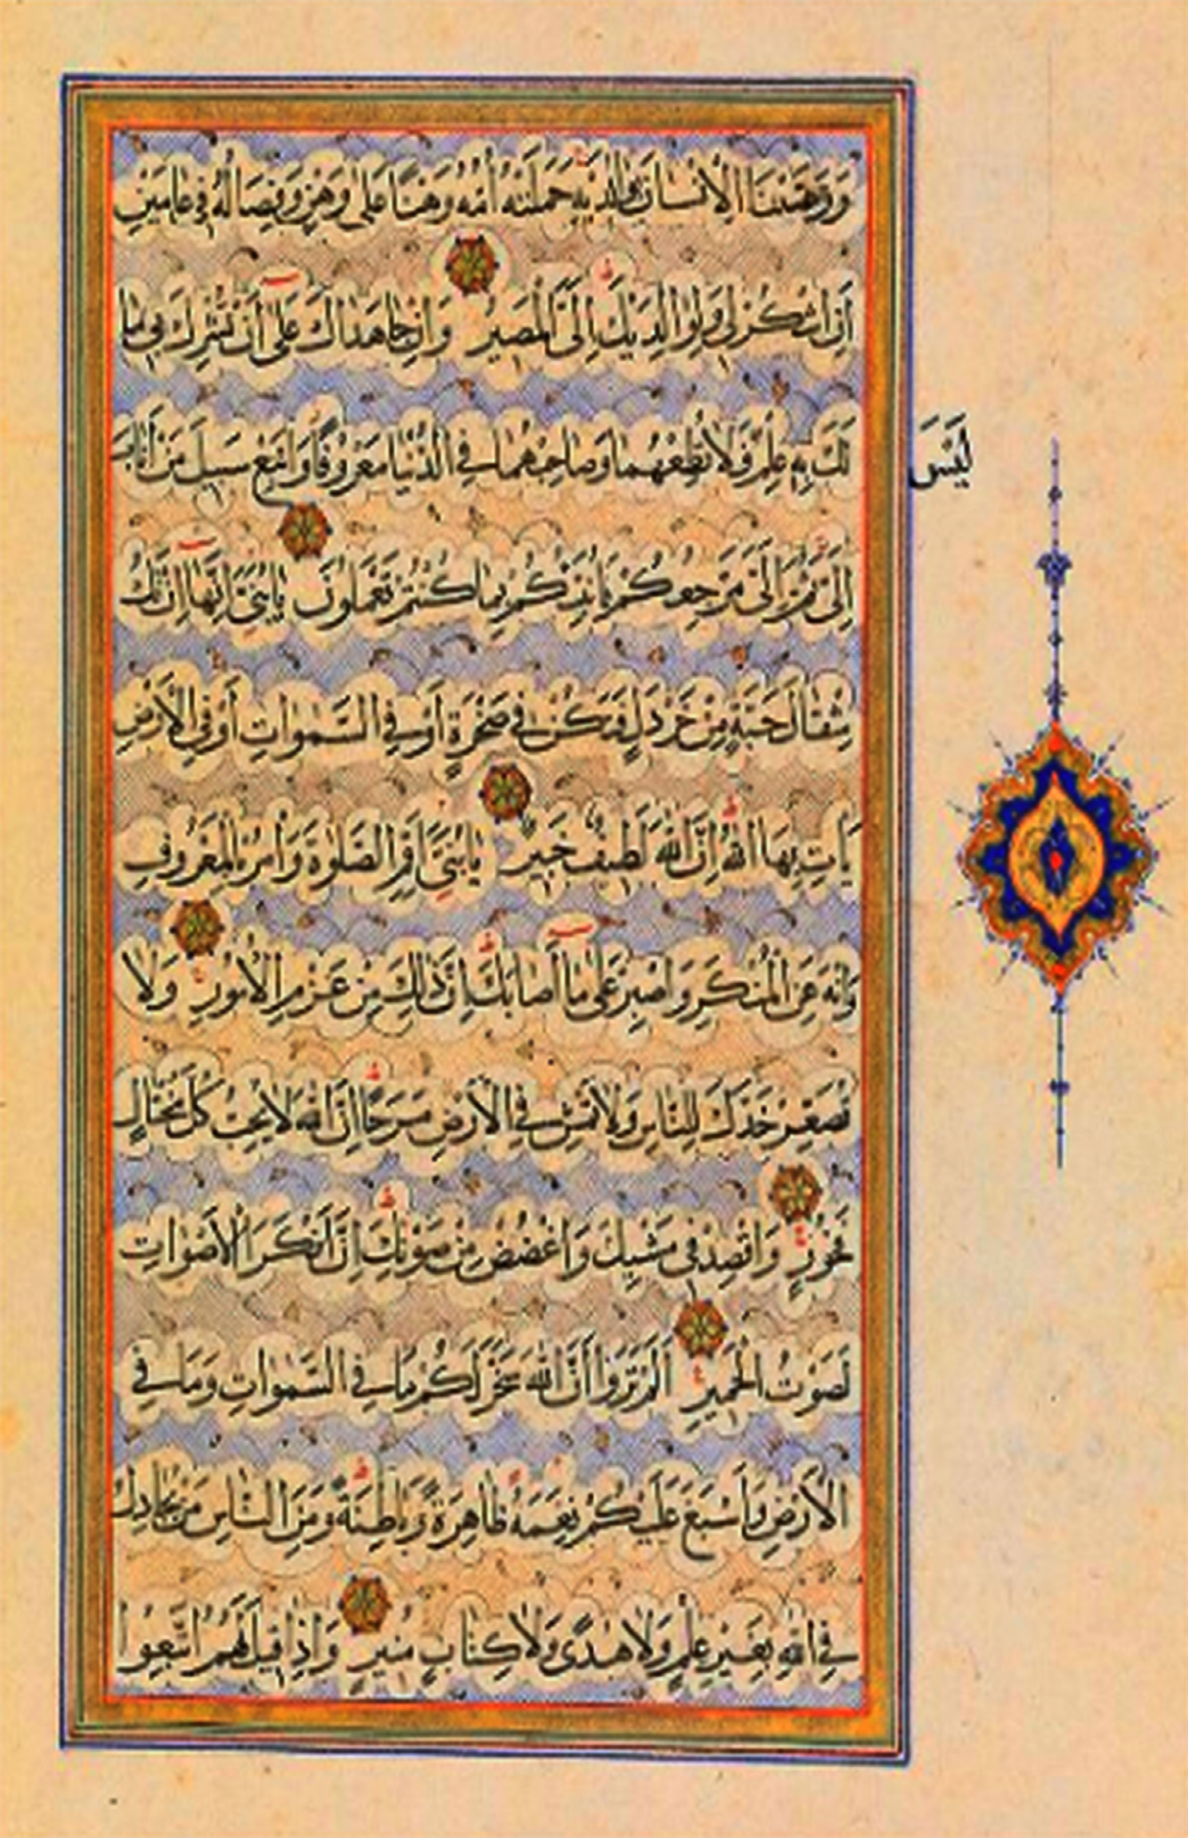 وَوَصَّيْنَا الْإِنْسَانَ بِوَالِدَيْهِ حَمَلَتْهُ أُمُّهُ وَهْنًا عَلَىٰ وَهْنٍ وَفِصَالُهُ فِي عَامَيْنِ
أَنِ اشْكُرْ لِي وَلِوَالِدَيْكَ إِلَيَّ الْمَصِيرُ وَإِنْ جَاهَدَاكَ عَلَىٰ أَنْ تُشْرِكَ بِي مَا
لَيْسَ
لَكَ بِهِ عِلْمٌ فَلَا تُطِعْهُمَا وَصَاحِبْهُمَا فِي الدُّنْيَا مَعْرُوفًا وَاتَّبِعْ سَبِيلَ مَنْ أَنَابَ
إِلَيَّ ثُمَّ إِلَيَّ مَرْجِعُكُمْ فَأُنَبِّئُكُمْ بِمَا كُنْتُمْ تَعْمَلُونَ يَا بُنَيَّ إِنَّهَا إِنْ تَكُ
مِثْقَالَ حَبَّةٍ مِنْ خَرْدَلٍ فَتَكُنْ فِي صَخْرَةٍ أَوْ فِي السَّمٰوَاتِ أَوْ فِي الْأَرْضِ
يَأْتِ بِهَا اللّٰهُ إِنَّ اللّٰهَ لَطِيفٌ خَبِيرٌ يَا بُنَيَّ أَقِمِ الصَّلٰوةَ وَأْمُرْ بِالْمَعْرُوفِ
وَانْهَ عَنِ الْمُنْكَرِ وَاصْبِرْ عَلَىٰ مَا أَصَابَكَ إِنَّ ذٰلِكَ مِنْ عَزْمِ الْأُمُورِ وَلَا
تُصَعِّرْ خَدَّكَ لِلنَّاسِ وَلَا تَمْشِ فِي الْأَرْضِ مَرَحًا إِنَّ اللّٰهَ لَا يُحِبُّ كُلَّ مُخْتَالٍ
فَخُورٍ وَاقْصِدْ فِي مَشْيِكَ وَاغْضُضْ مِنْ صَوْتِكَ إِنَّ أَنْكَرَ الْأَصْوَاتِ
لَصَوْتُ الْحَمِيرِ أَلَمْ تَرَوْا أَنَّ اللّٰهَ سَخَّرَ لَكُمْ مَا فِي السَّمٰوَاتِ وَمَا فِي
الْأَرْضِ وَأَسْبَغَ عَلَيْكُمْ نِعَمَهُ ظَاهِرَةً وَبَاطِنَةً وَمِنَ النَّاسِ مَنْ يُجَادِلُ
فِي اللّٰهِ بِغَيْرِ عِلْمٍ وَلَا هُدًى وَلَا كِتَابٍ مُنِيرٍ وَإِذَا قِيلَ لَهُمُ اتَّبِعُوا